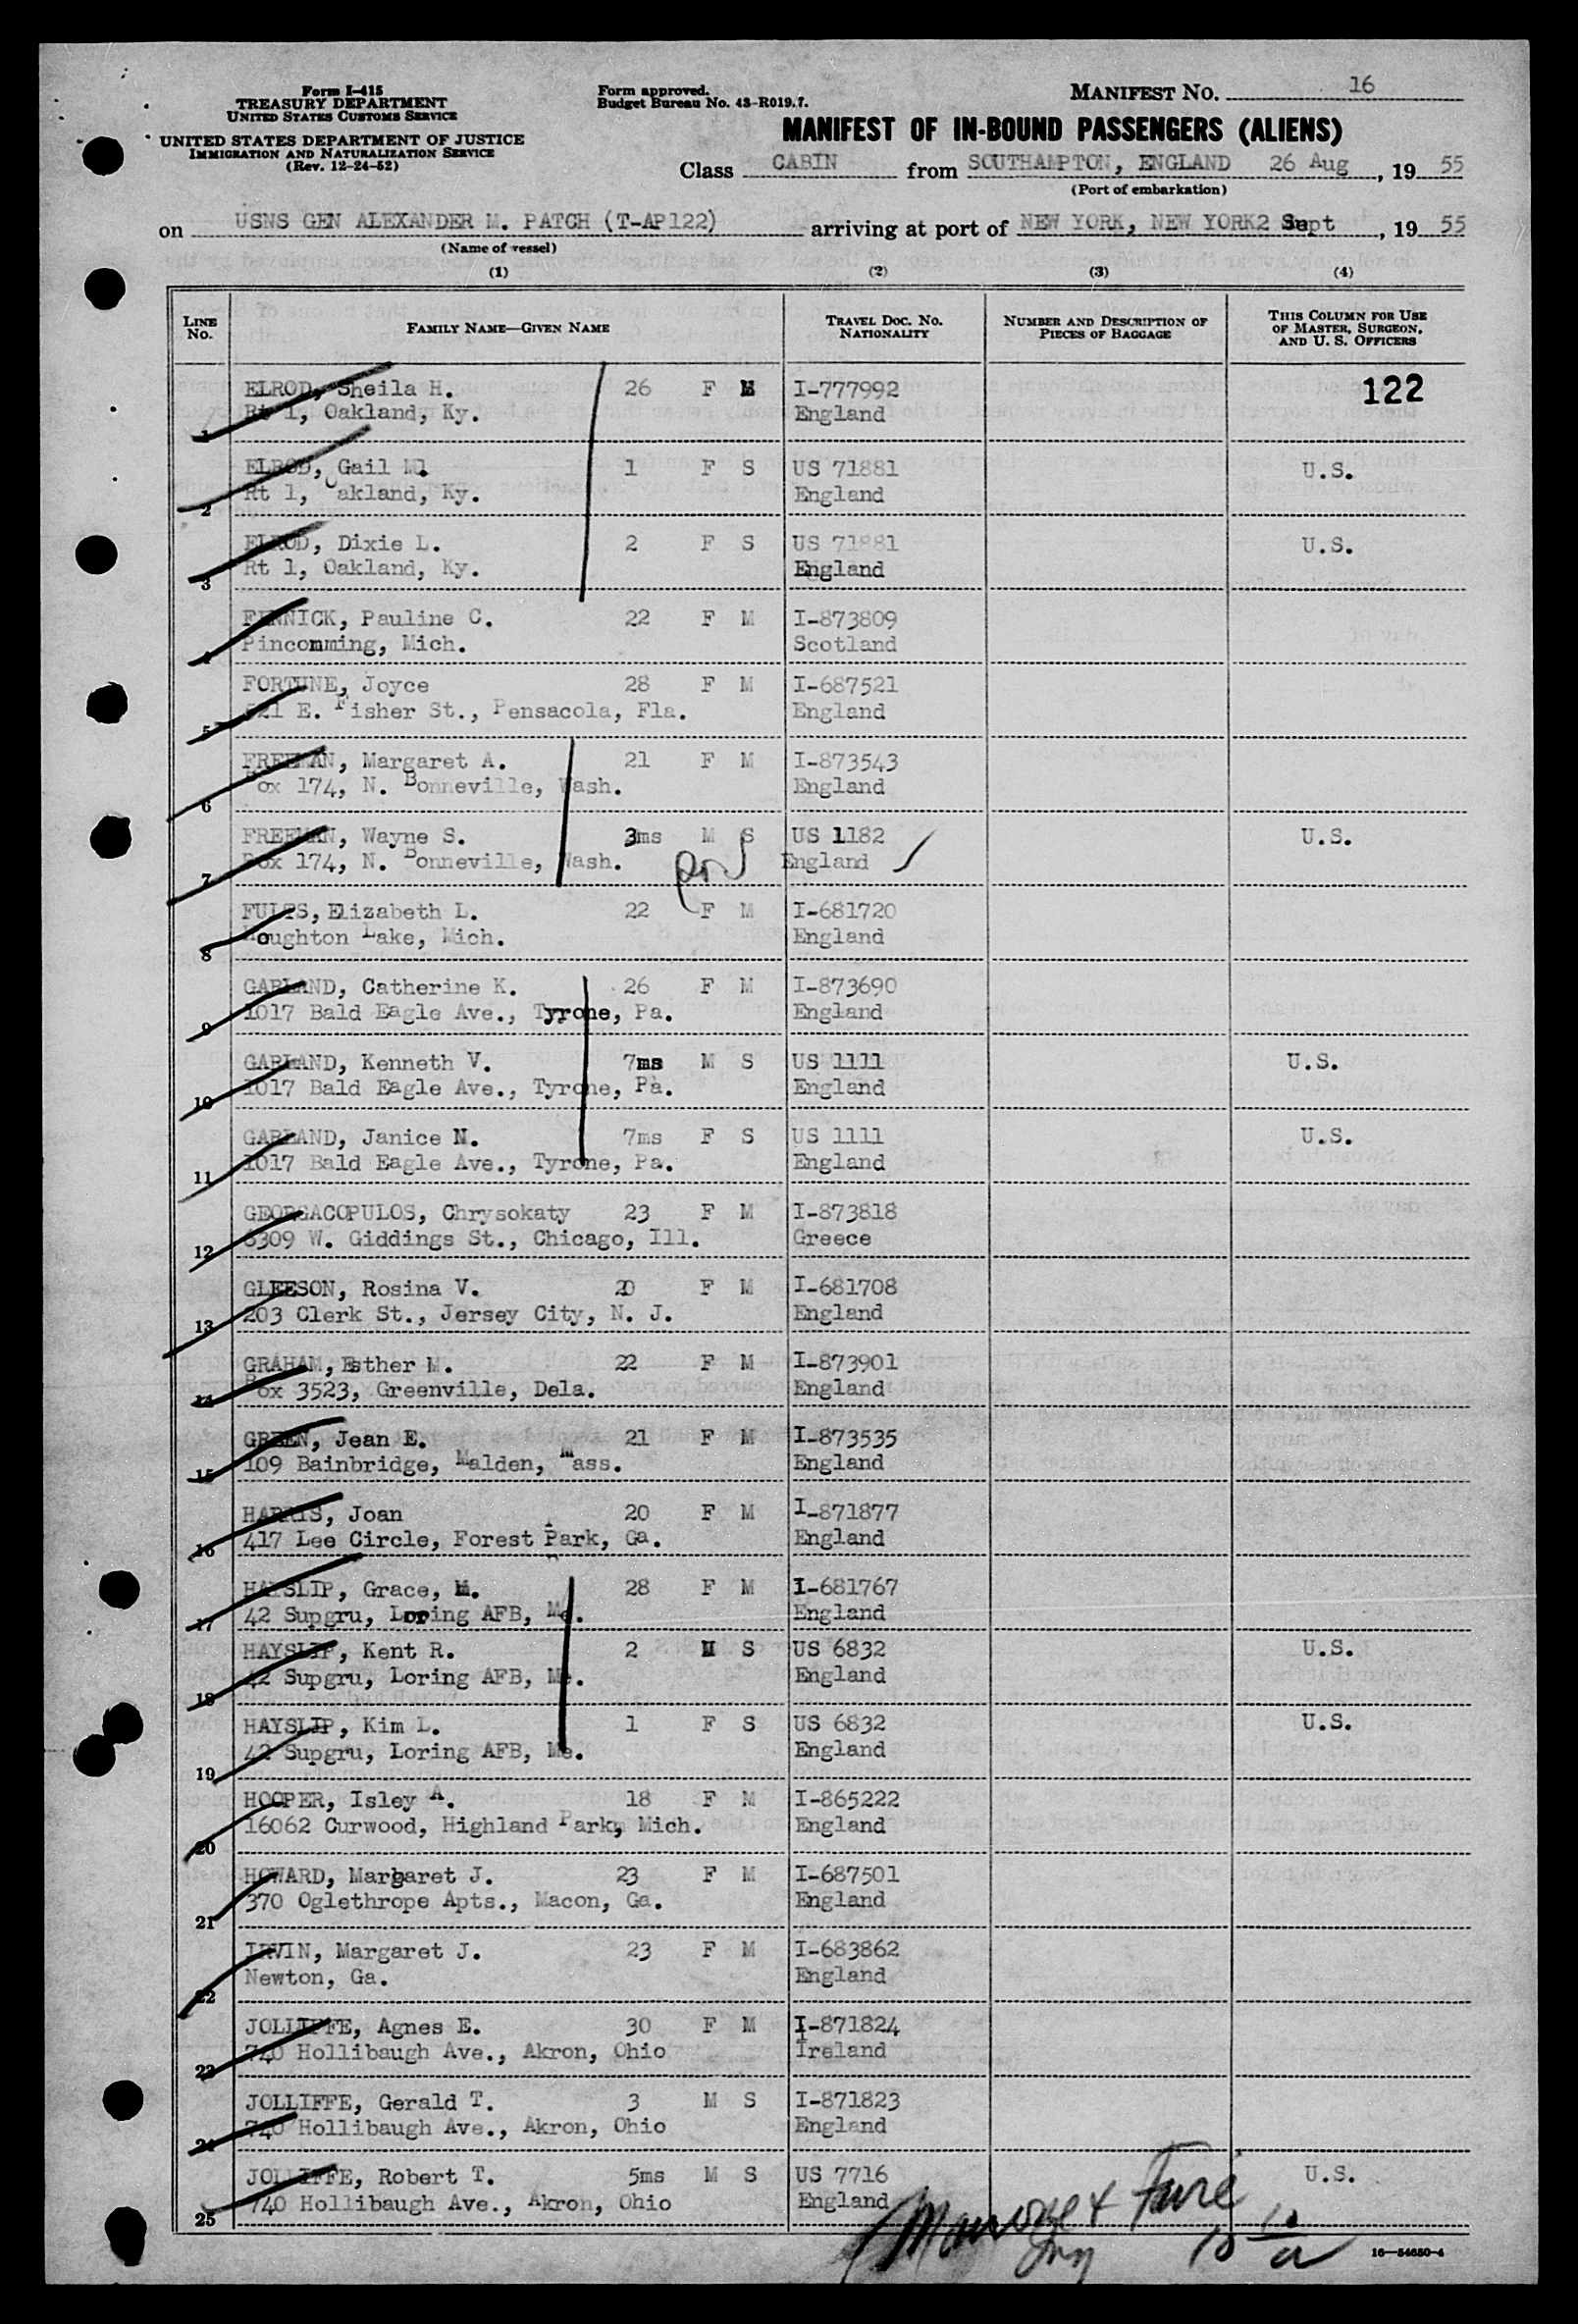 Form I-415
TREASURY DEPARTMENT
UNITED STATES CUSTOMS SERVICE
UNITED STATES DEPARTMENT OF JUSTICE
IMMIGRATION AND NATURALIZATION SERVICE
(Rev. 12-24-52)
Form approved.
Budget Bureau No. 43-R019.7.
MANIFEST NO. 16
MANIFEST OF IN-BOUND PASSENGERS (ALIENS)
Class CABIN from SOUTHAMPTON, ENGLAND 26 Aug, 19 55
(Port of embarkation)
on USNS GEN ALEXANDER M. PATCH (T-AP122) arriving at port of NEW YORK, NEW YORK 2 Sept, 19 55
(Name of vessel)
(1) (2) (3) (4)
LINE NO. FAMILY NAME—GIVEN NAME TRAVEL DOC. NO. NATIONALITY NUMBER AND DESCRIPTION OF PIECES OF BAGGAGE THIS COLUMN FOR USE OF MASTER, SURGEON, AND U. S. OFFICERS
ELROD, Sheila H. 26 F M I-777992 122
1 Rt 1, Oakland, Ky. England
ELROD, Gail M. 1 F S US 71881 U.S.
2 Rt 1, Oakland, Ky. England
ELROD, Dixie L. 2 F S US 71881 U.S.
3 Rt 1, Oakland, Ky. England
FINNICK, Pauline C. 22 F M I-873809
4 Pincomming, Mich. Scotland
FORTUNE, Joyce 28 F M I-687521
5 521 E. Fisher St., Pensacola, Fla. England
FREEMAN, Margaret A. 21 F M I-873543
6 Box 174, N. Bonneville, Wash. England
FREEMAN, Wayne S. 3ms M S US 1182 U.S.
7 Box 174, N. Bonneville, Wash. England
FULTS, Elizabeth L. 22 F M I-681720
8 Houghton Lake, Mich. England
GARLAND, Catherine K. 26 F M I-873690
9 1017 Bald Eagle Ave., Tyrone, Pa. England
GARLAND, Kenneth V. 7ms M S US 1111 U.S.
10 1017 Bald Eagle Ave., Tyrone, Pa. England
GARLAND, Janice N. 7ms F S US 1111 U.S.
11 1017 Bald Eagle Ave., Tyrone, Pa. England
GEORGACOPULOS, Chrysokaty 23 F M I-873818
12 8309 W. Giddings St., Chicago, Ill. Greece
GLEESON, Rosina V. 20 F M I-681708
13 203 Clerk St., Jersey City, N. J. England
GRAHAM, Esther M. 22 F M I-873901
14 Box 3523, Greenville, Dela. England
GREEN, Jean E. 21 F M I-873535
15 109 Bainbridge, Malden, Mass. England
HARRIS, Joan 20 F M I-871877
16 417 Lee Circle, Forest Park, Ga. England
HAYSLIP, Grace, M. 28 F M I-681767
17 42 Supgru, Loring AFB, Me. England
HAYSLIP, Kent R. 2 M S US 6832 U.S.
18 42 Supgru, Loring AFB, Me. England
HAYSLIP, Kim L. 1 F S US 6832 U.S.
19 42 Supgru, Loring AFB, Me. England
HOOPER, Isley A. 18 F M I-865222
20 16062 Curwood, Highland Park, Mich. England
HOWARD, Margaret J. 23 F M I-687501
21 370 Oglethrope Apts., Macon, Ga. England
IRVIN, Margaret J. 23 F M I-683862
22 Newton, Ga. England
JOLLIFFE, Agnes E. 30 F M I-871824
23 740 Hollibaugh Ave., Akron, Ohio Ireland
JOLLIFFE, Gerald T. 3 M S I-871823
24 740 Hollibaugh Ave., Akron, Ohio England
JOLLIFFE, Robert T. 5ms M S US 7716 U.S.
25 740 Hollibaugh Ave., Akron, Ohio England
16—54650-4